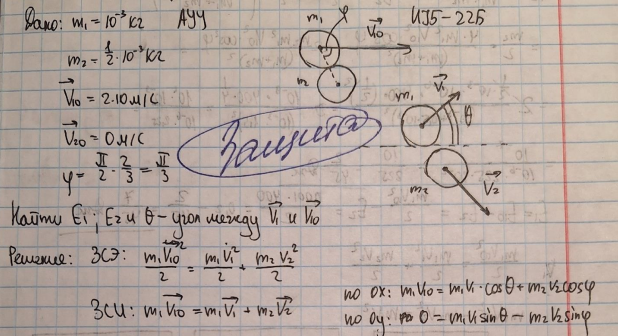 Дано: m₁ = 10⁻³ кг
АУУ
ИУ5-22Б
m₂ = 1/2 · 10⁻³ кг
V₁₀ = 2·10 м/с
V₂₀ = 0 м/с
φ = π/2 · 2/3 = π/3
m₁ φ V₁₀
m₂
m₁ V₁ θ
m₂ V₂
Защита
Найти E₁; E₂ и θ - угол между V₁ и V₁₀
Решение: ЗСЭ: m₁V₁₀²/2 = m₁V₁²/2 + m₂V₂²/2
ЗСИ: m₁V₁₀ = m₁V₁ + m₂V₂
по ox: m₁V₁₀ = m₁V₁·cosθ + m₂V₂cosφ
по oy: 0 = m₁V₁sinθ − m₂V₂sinφ